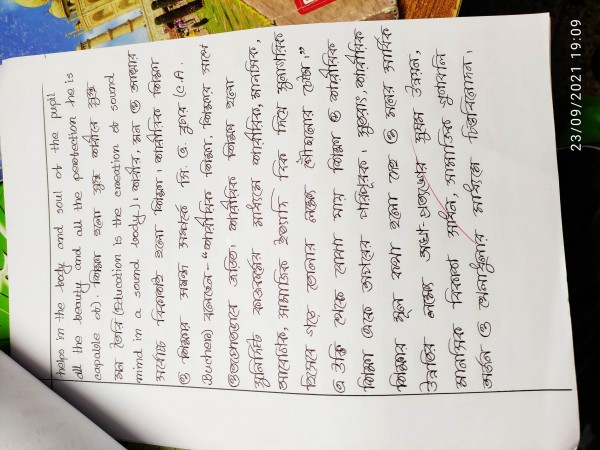 helps in the body and soul of the pupil
all the beauty and all the parefection he is
capable of). শিক্ষা হলো সুস্থ শরীরে সুস্থ
মন তৈরি (Education is the creation of sound
mind in a sound body)। শরীর, মন ও আত্মার
সর্বোচ্চ বিকাশই হলো শিক্ষা। শারীরিক শিক্ষা
ও শিক্ষার সম্বন্ধ সম্পর্কে সি. এ. বুচার (C.A.
Bucher) বলেছেন- "শারীরিক শিক্ষা, শিক্ষার সাথে
ওতপ্রোতভাবে জড়িত। শারীরিক শিক্ষা হলো
সুনির্দিষ্ট কাজকর্মের মাধ্যমে শারীরিক, মানসিক,
প্রাক্ষোভিক, সামাজিক ইত্যাদি দিক দিয়ে সুনাগরিক
হিসেবে গড়ে তোলার লক্ষ্যে পৌঁছানোর চেষ্টা।"
এ উক্তি থেকে বোঝা যায় শিক্ষা ও শারীরিক
শিক্ষা একে অপরের পরিপূরক। সুতরাং, শারীরিক
শিক্ষার মূল কথা হলো দেহ ও মনের সার্বিক
উন্নতির লক্ষ্যে অঙ্গ-প্রত্যঙ্গের সুষম উন্নয়ন,
মানসিক বিকাশ সাধন, সামাজিক গুণাবলি
অর্জন ও খেলাধুলার মাধ্যমে চিত্তবিনোদন।
23/09/2021 19:09